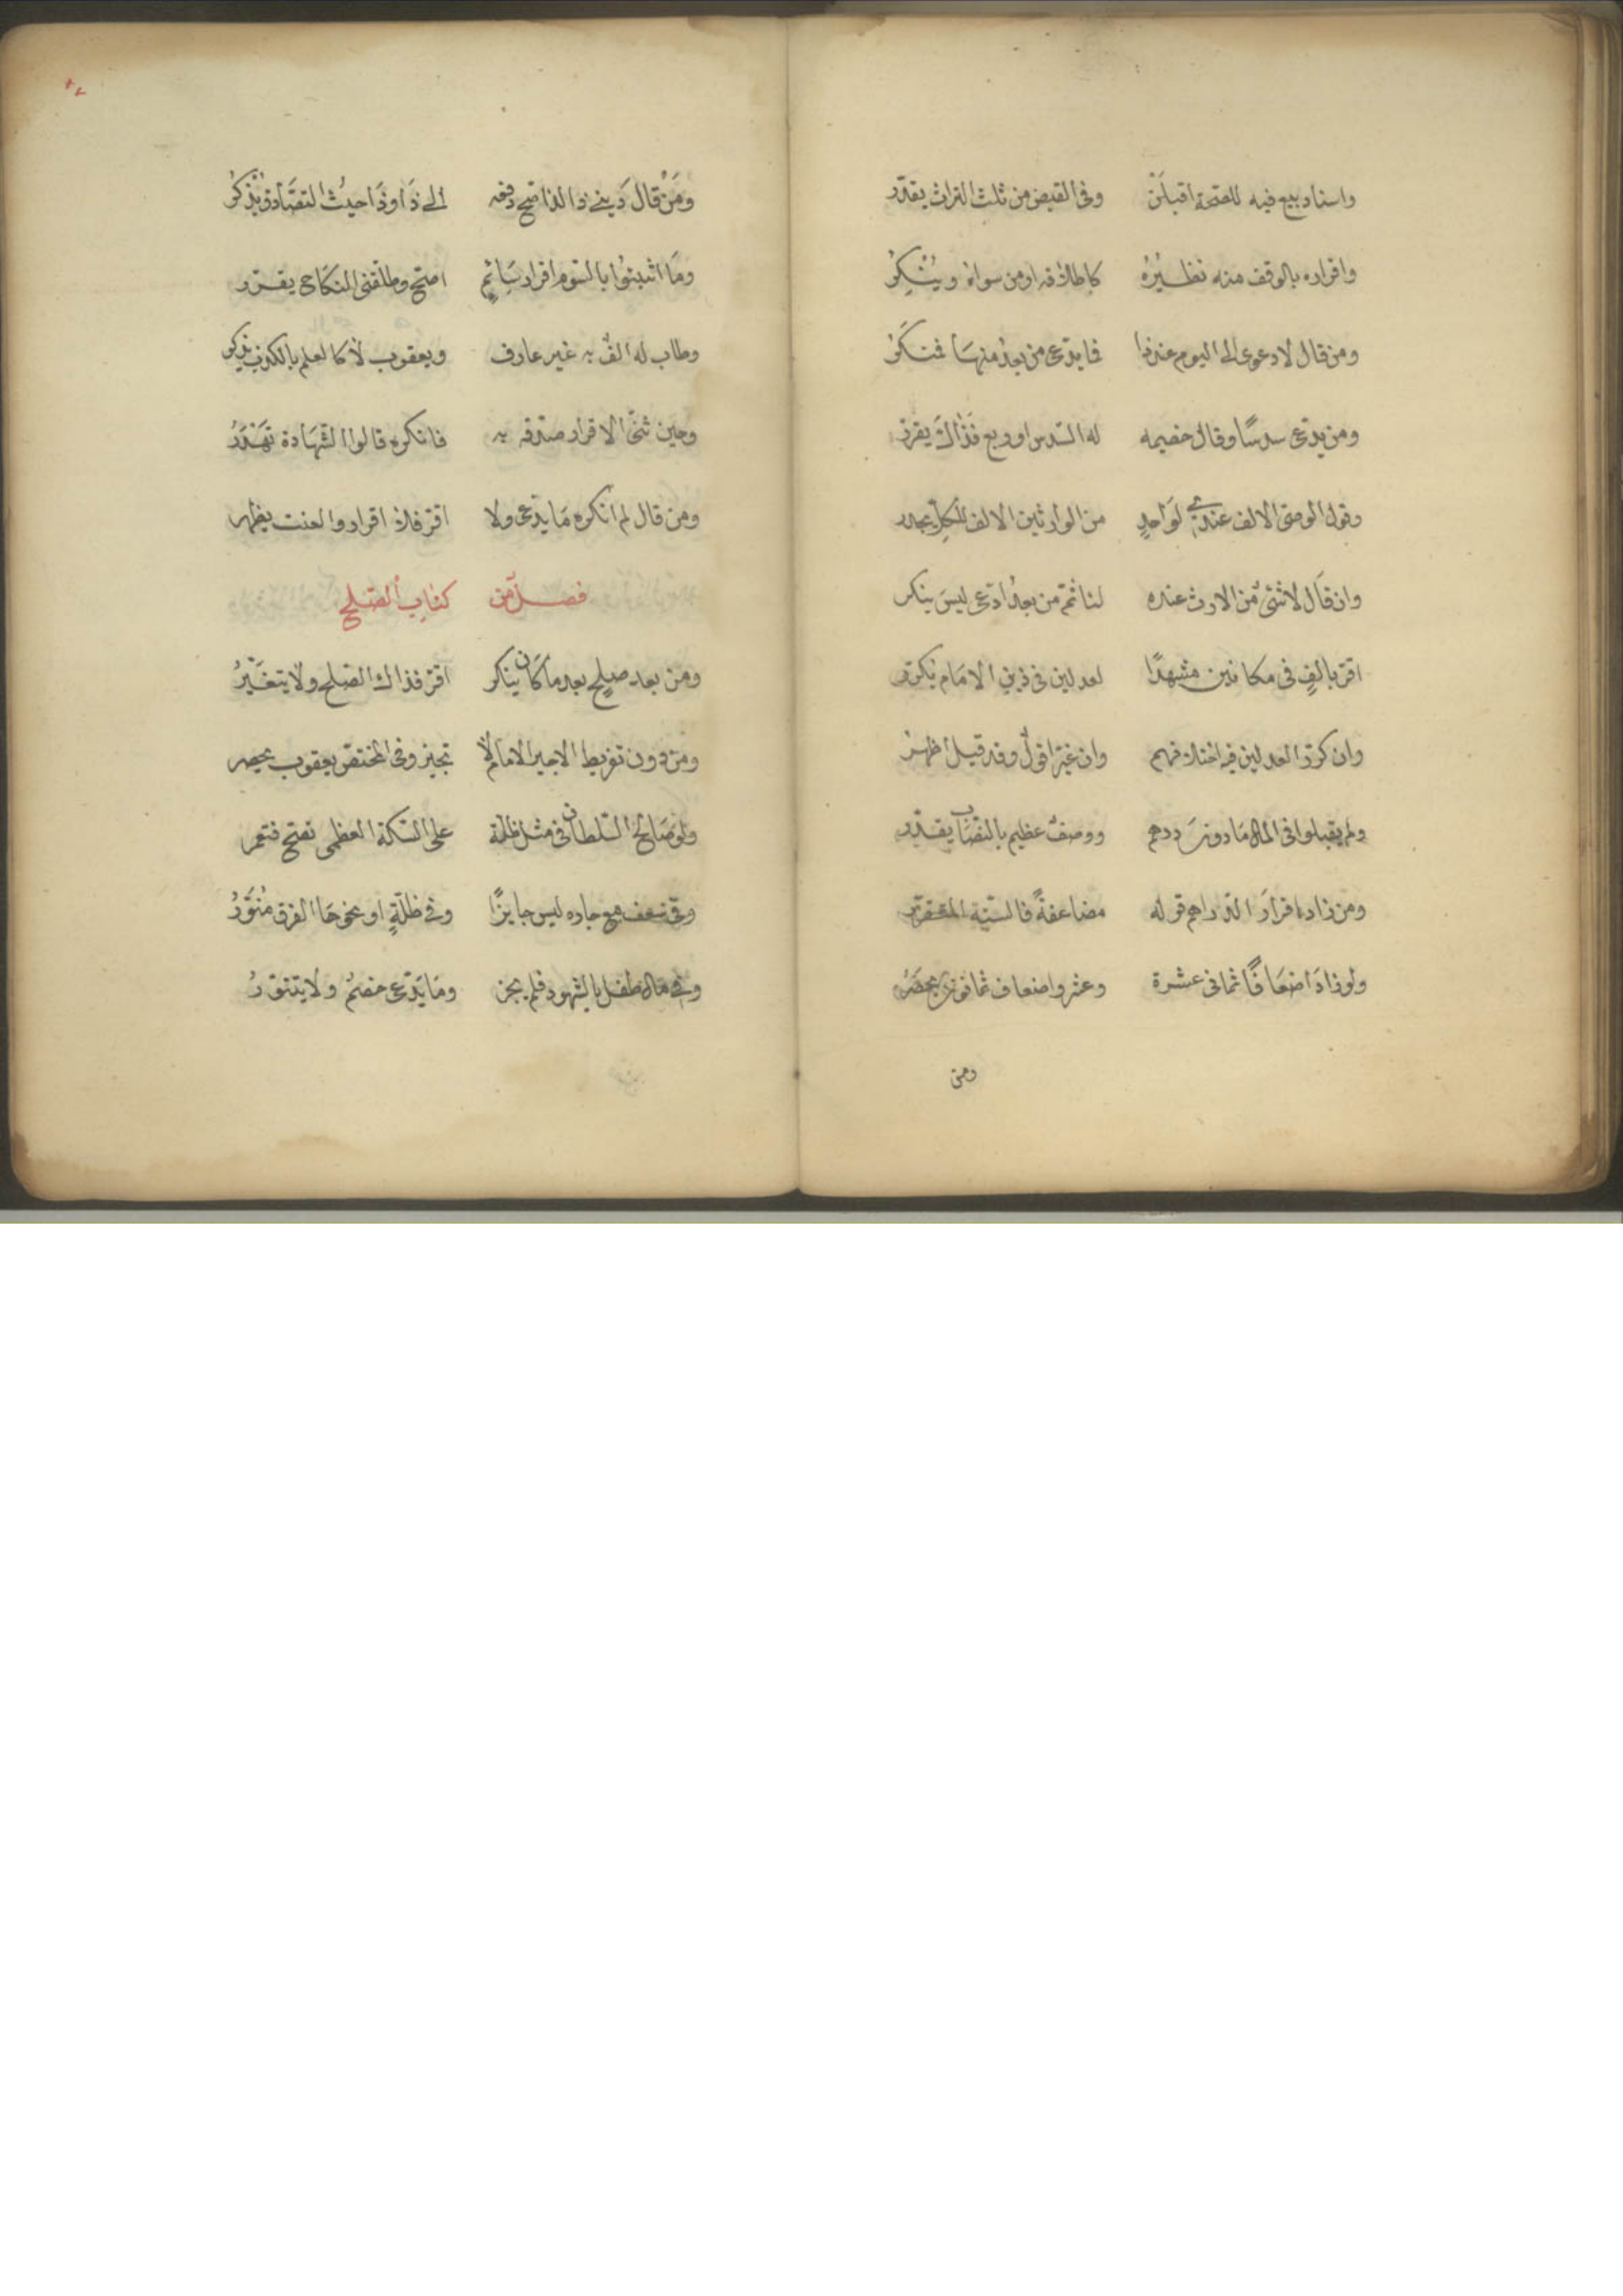 واسناد بيع فيه للصحة اقبلن وفي القبض من ثلث التراث يقدر
واقراره بالوقف منه نظيره كاطلاقه او من سواه ويشكر
ومن قال لا دعوى لي اليوم عند ذا فما يدعي من بعد منها فمنكر
ومن يدعي سدسا وقال خصيمه له السدس او ربع فذاك يقرر
وقول الوصي الالف عندي لواحد من الوارثين الالف للكل يجدر
وان قال لا شئ من الارث عنده لنا ثم من بعد ادعى ليس ينكر
اقر بالف في مكانين مشهدا لعدلين في ذين الامام يكرر
وان كرر العدلين فيه اختلافهم وان غير اقول وقد قيل اظهر
ولم يقبلوا في المال ما دون درهم ووصف عظيم بالنصاب يقدر
ومن زاد اقرار الدراهم قوله مضاعفة فالستة المتقرر
ولو زاد اضعافا ثماني عشرة وعشر واضعاف ثمانون يحصر
ومن
ومن قال ديني ذا لذا صح دفعه الى ذا وذا حيث التصادق يذكر
وما اثبتوا بالسوم اقرار سائم اصح وطلقني النكاح يقرر
وطاب له الف به غير عارف ويعقوب لا كالعلم بالكذب يذكر
وحين ثنى الاقرار صدقه به فانكره قالوا الشهادة تهدر
ومن قال لم انكره ما يدعي ولا اقر فلا اقرار والعنت يظهر
فصل من كتاب الصلح
ومن بعد صلح بعد ما كان ينكر اقر فذاك الصلح ولا يتغير
ومن دون تفريط الاجير الامام لا تجيز وفي المختص يعقوب يحصر
ولو صالح السلطان في مثل ظلة على السكة العظمى تصح فتعمر
وفي سعف مع جاره ليس جايزا وفي ظلة او نخوها الفرق منور
وفي مال طفل بالشهود فلم يجز وما يدعي خصم ولا يتنور